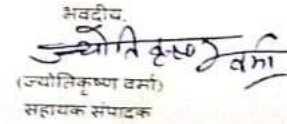 भवदीय,
ज्योतिकृष्ण वर्मा
(ज्योतिकृष्ण वर्मा)
सहायक संपादक